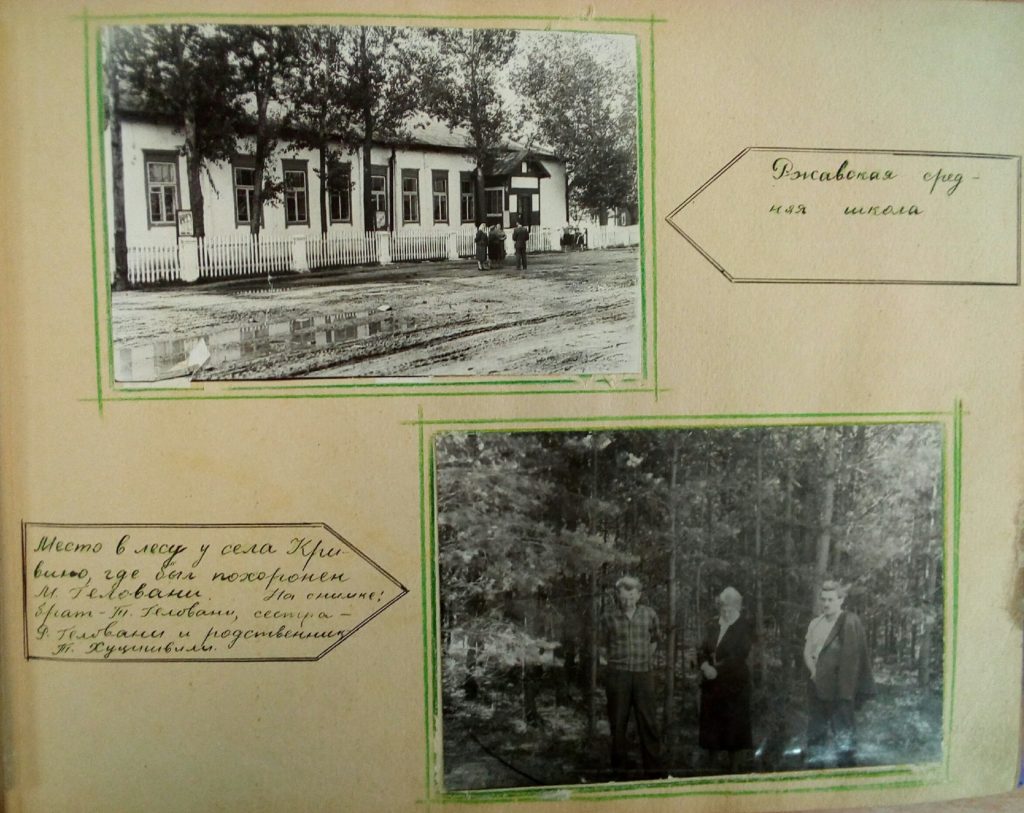 Ржавская сред-
няя школа
Место в лесу у села Кри-
вино, где был похоронен
М. Геловани. На снимке:
брат - Т. Геловани, сестра -
Ф. Геловани и родственник
Т. Хуцишвили.